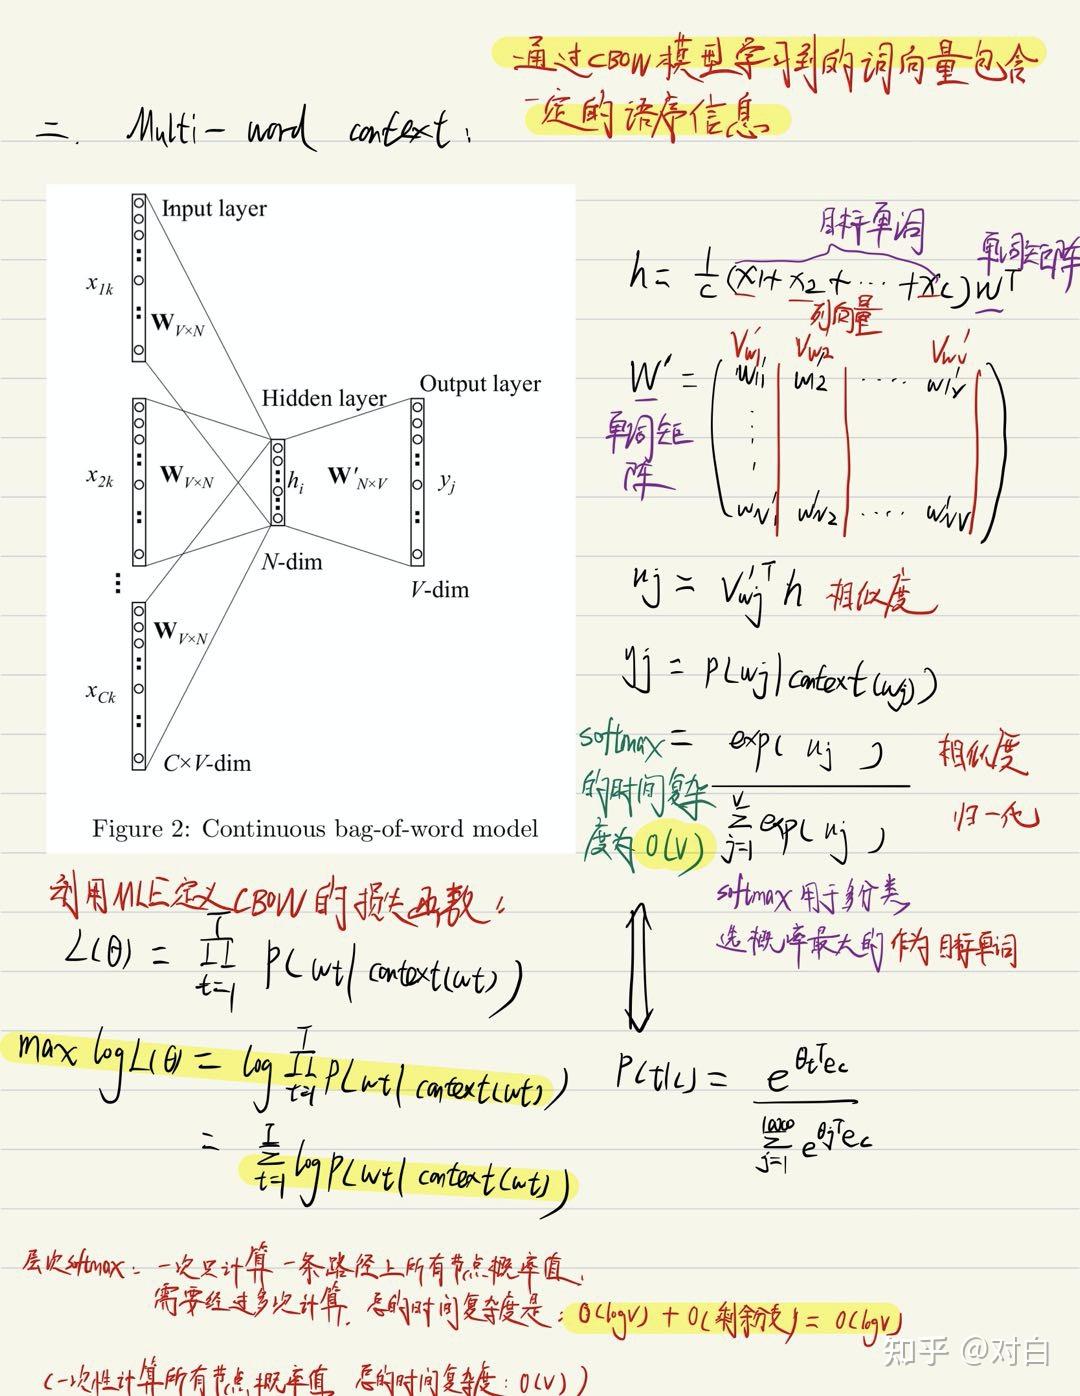 通过CBOW模型学习到的词向量包含
一定的语序信息
二. Multi-word context:
Input layer
x1k
WV×N
Hidden layer
Output layer
x2k
WV×N
hi
W'N×V
yj
N-dim
V-dim
WV×N
xCk
C×V-dim
Figure 2: Continuous bag-of-word model
目标单词
单词矩阵
h = 1/C (x1+x2+...+xC)WT
列向量
Vw1' Vw2' Vwv'
W' = (w11' w12' .... w1v'
单词矩
阵
wN1' wN2' .... wNV')
uj = Vwj'T h 相似度
yj = P(wj|context(wj))
softmax = exp(uj) / V∑j=1 exp(uj)
的时间复杂
度为O(V)
相似度
归一化
softmax用于多分类
选概率最大的作为目标单词
利用MLE定义CBOW的损失函数:
L(θ) = T∏t=1 P(wt|context(wt))
max logL(θ) = log T∏t=1 P(wt|context(wt))
= T∑t=1 logP(wt|context(wt))
P(t|c) = eθtTec / 10000∑j=1 eθjTec
层次softmax: 一次只计算一条路径上所有节点概率值,
需要经过多次计算. 总的时间复杂度是: O(logV) + O(剩余分支) = O(logV)
(一次性计算所有节点概率值 总的时间复杂度: O(V))
知乎 @对白